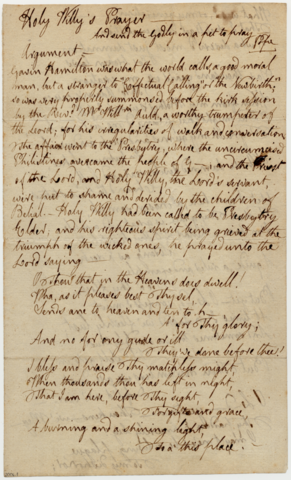 Holy Willy's Prayer
And send the Godly in a pet to pray
Pope
Argument—
Gavin Hamilton was what the world calls, a good moral
man, but a stranger to "Effectual Calling" or the Newbirth;
so was very properly summoned before the kirk session
by the Revd. Mr. Willm. Auld, a worthy trumpeter of
the Lord; for his irregularities of walk and conversation
the affair went to the Presbytry, where the uncircumcised
Philistines overcame the people of G—, and the Priest
of the Lord, and Holy Willy, the Lord's servant
were put to shame and derided by the children of
Belial— Holy Willy had been called to be Presbytry
Elder, and his righteous spirit being grieved at the
triumph of the wicked ones, he prayed unto the
Lord saying
O thou that in the Heavens does dwell!
Wha, as it pleases best Thysel,
Sends ane to heaven and ten to h—
A' for Thy glory;
And no for ony gude or ill
They've done before thee!
I bless and praise Thy matchless might,
When thousands thou has left in night,
That I am here, before Thy sight,
For gifts and grace,
A burning and a shining light
To a' this place.